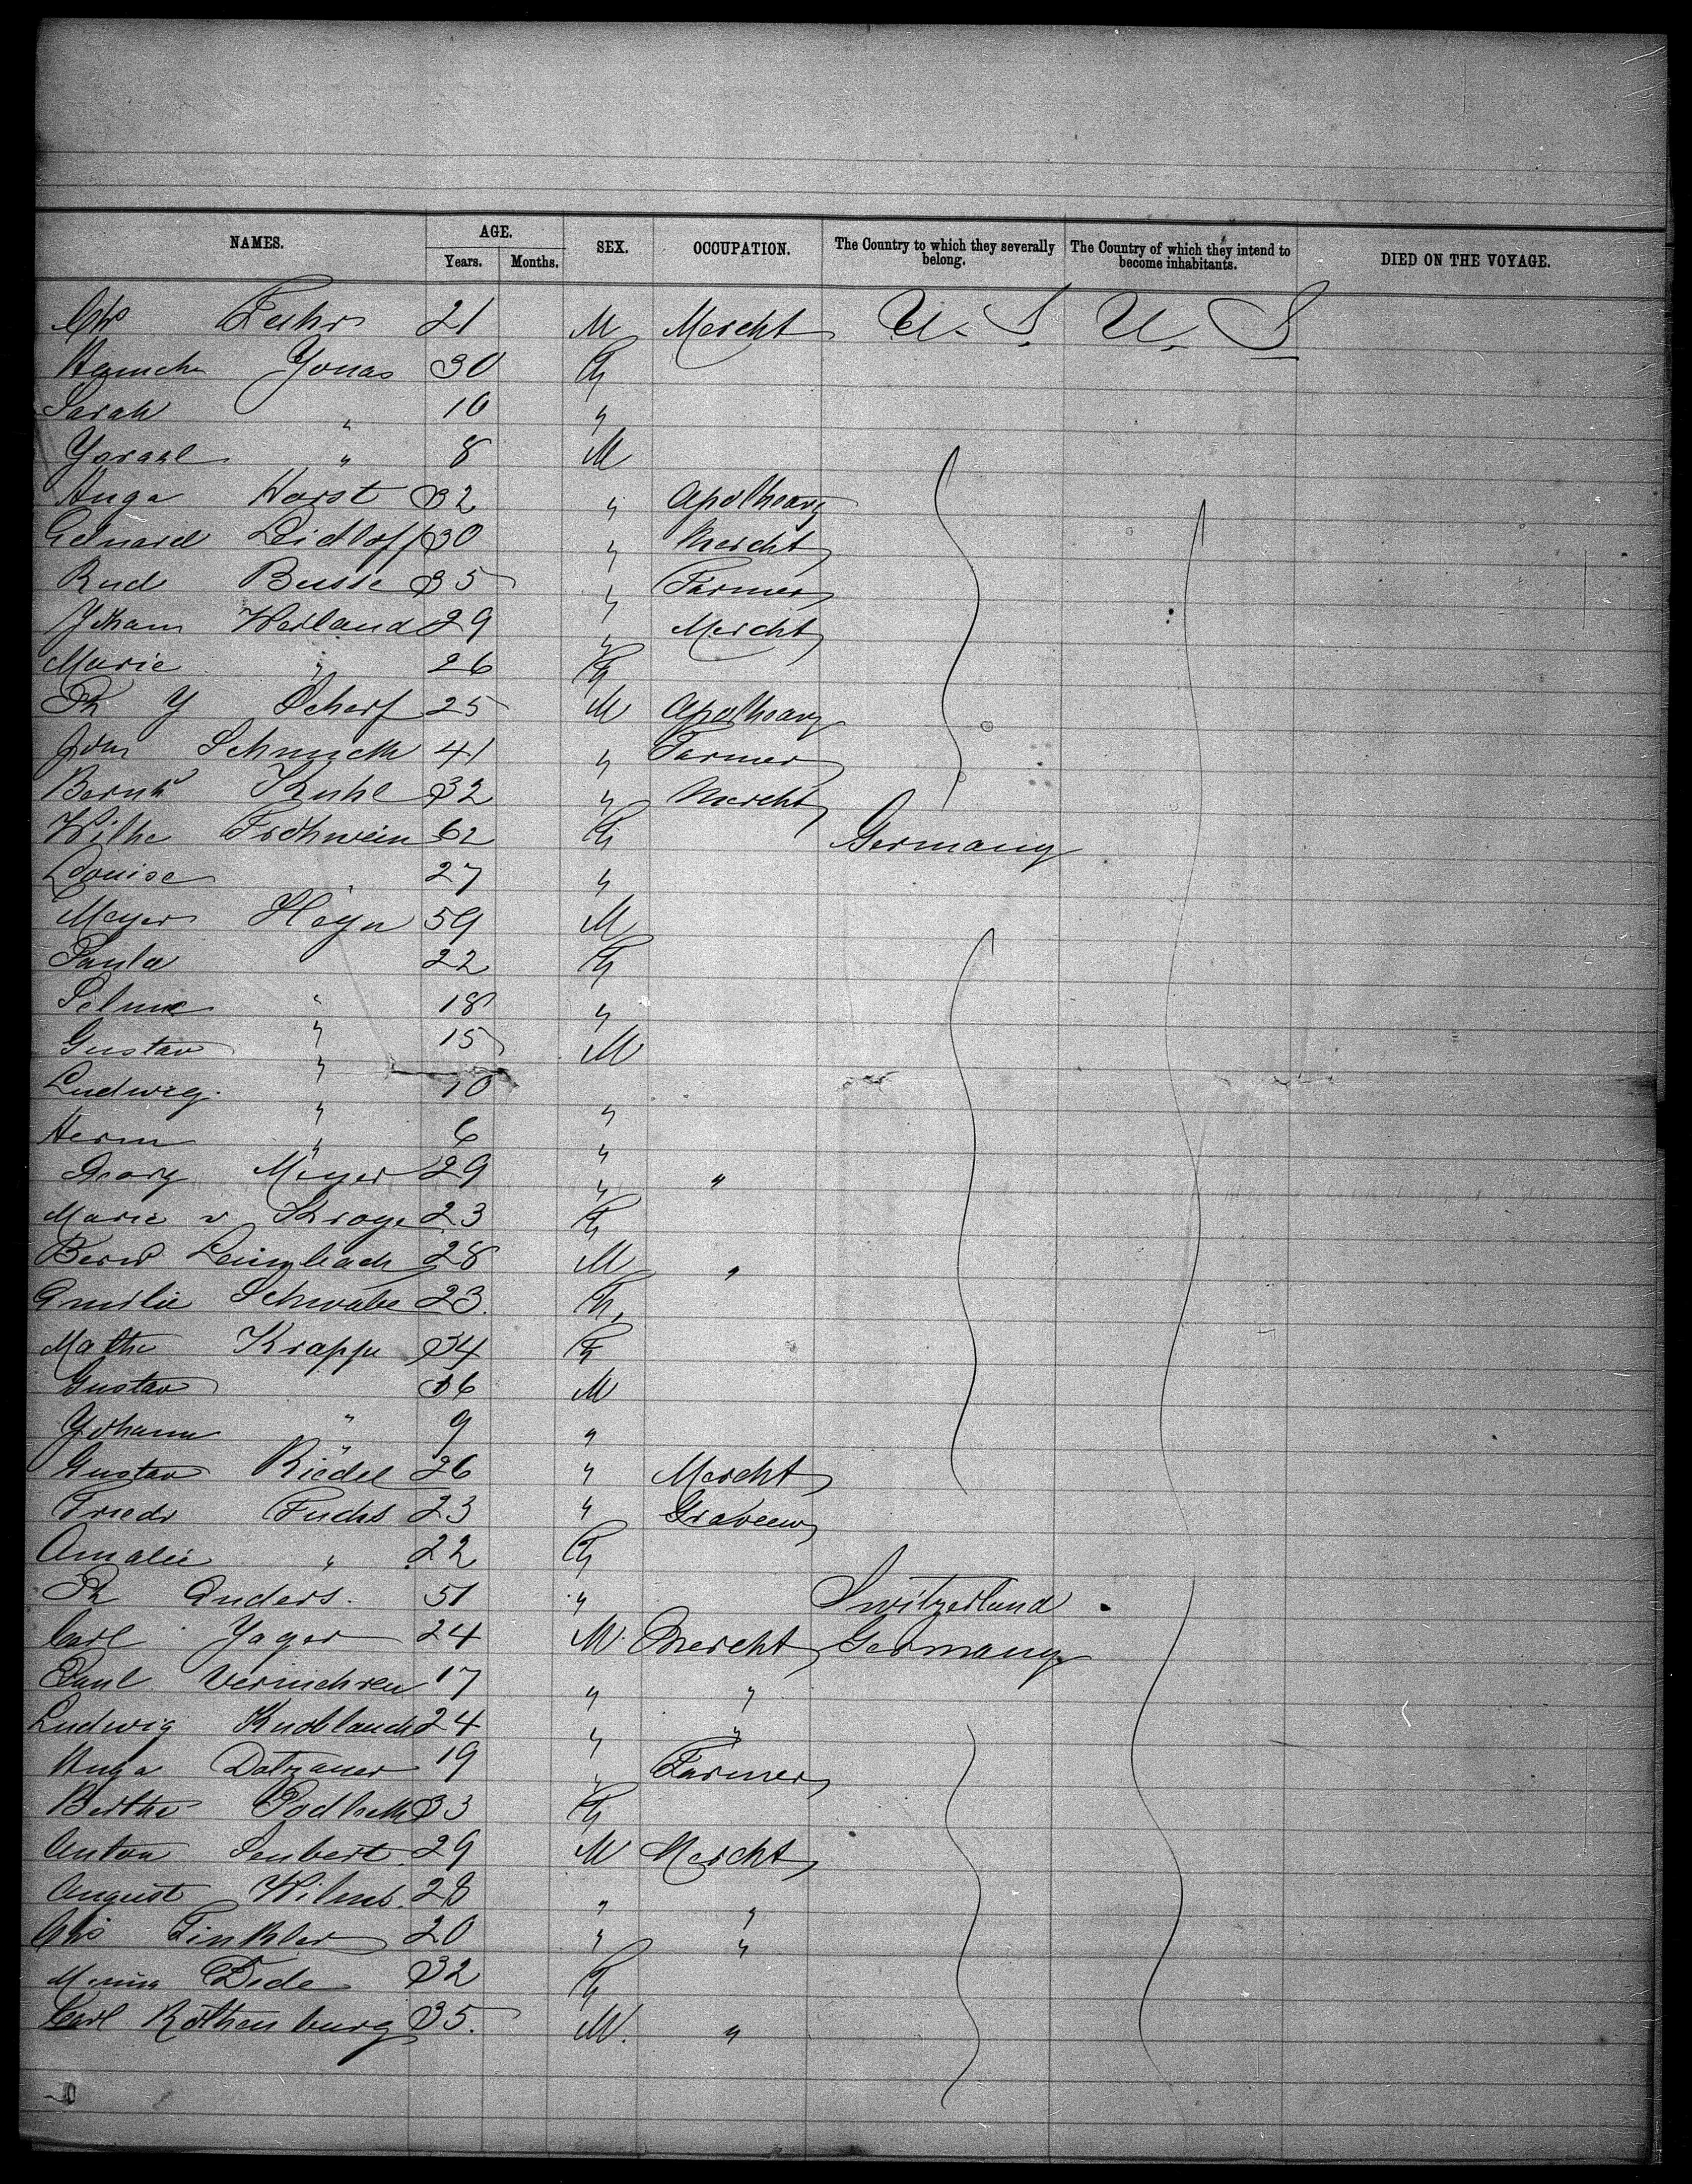 NAMES. AGE. SEX. OCCUPATION. The Country to which they severally belong. The Country of which they intend to become inhabitants. DIED ON THE VOYAGE.
Years. Months.
Chs Fuhr 21 M Mercht U. S. U. S
Yonas 30 F
Sarah " 10 "
Ysrael " 8 M
Huga Horst 32 " Apotheary
Eduard Leidloff 30 " Mercht
Rud Busse 35 " Farmer
Joham Weiland 29 " Mercht
Marie " 26 F
Ph Y Scherf 25 M Apotheary
John Schmuck 41 " Farmer
Bernh Kuhl 32 " Mercht
Wilhe Frohwein 62 F Germany
Louise 27 "
Meyer Heyn 59 M
Paula 22 F
Selma " 18 "
Gustav " 15 M
Ludwig " 10 "
Herm " 6 "
Georg Meyer 29 " "
Marie v Kroge 23 F
Bernd Leimbach 28 M "
Emilie Schwabe 23. F
Mathe Krappe 34 F
Gustav 16 M
Johann " 9 "
Gustav Riedel 26 " Mercht
Friedr Fuchs 23 " Graveur
Amalie " 22 F
Ph Enders. 51 " Switzerland
Carl Yager 24 M. Mercht Germany
Paul Vermehren 17 " "
Ludwig Knoblauch 24 " "
Huga Dotzauer 19 " Farmer
Berthe 33 F
Anton Seubert. 29 M Mercht
August Wilms. 28 " "
Chs Finkler 20 " "
Minna Dede 32 F
Carl Rothenburg 35. M. "